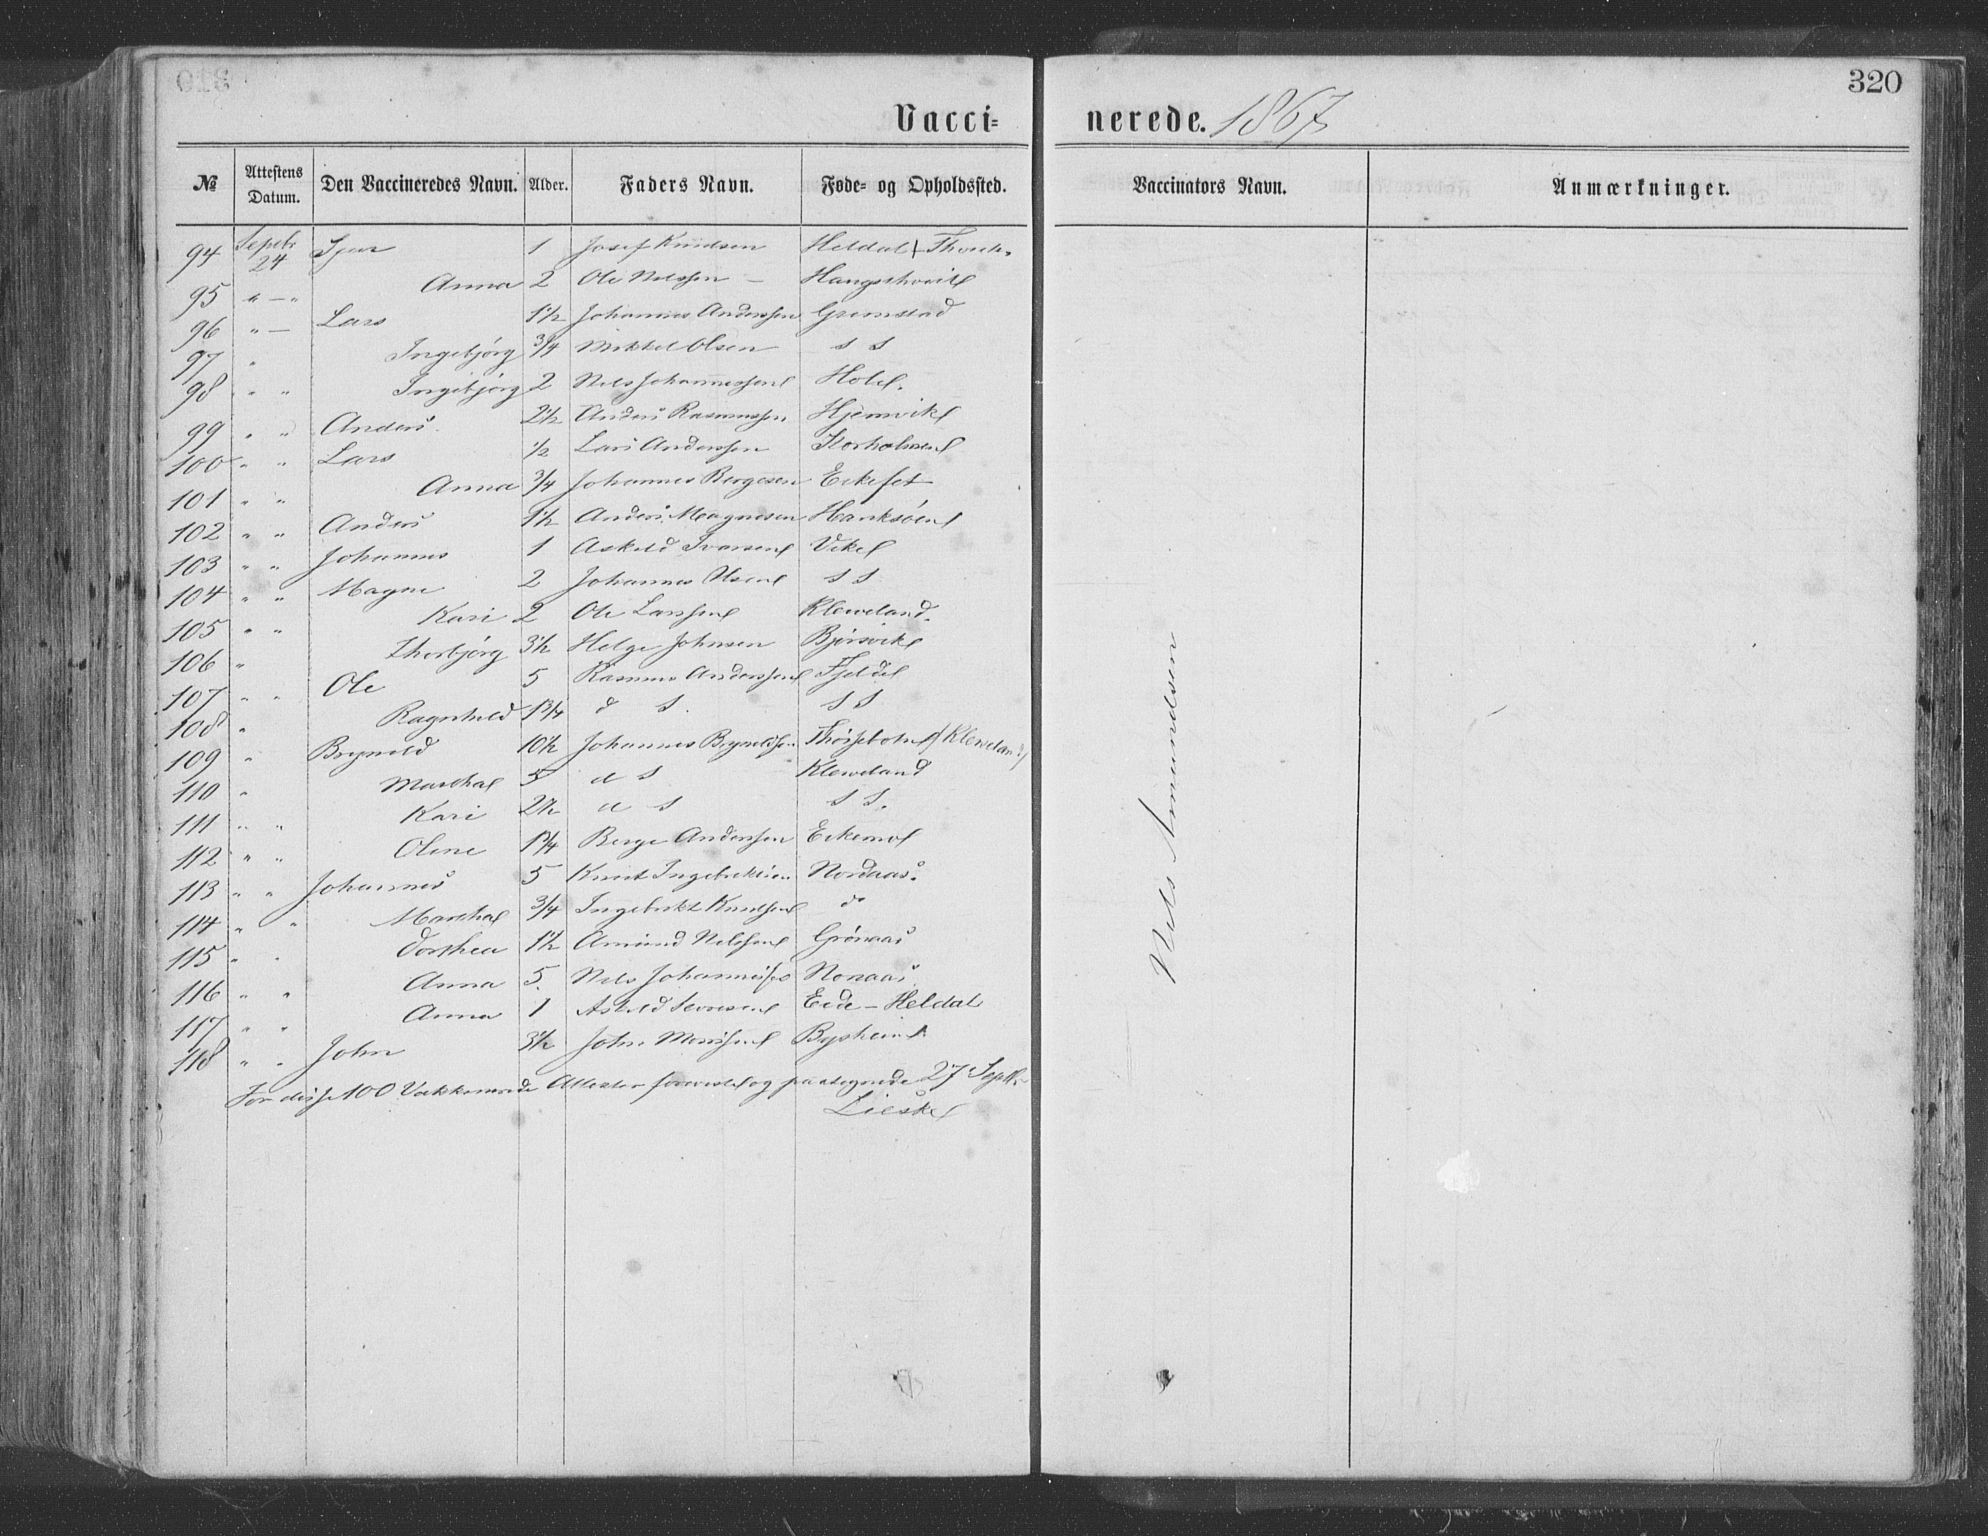 320
Vaccinerede. 1867
№ Attestens Datum. Den Vaccineredes Navn. Alder. Faders Navn. Føde- og Opholdssted. Vaccinators Navn. Anmærkninger.
94 Septr 24 1 Josef Knudsen Heldal
95 " — " Anna 2 Ole Nilssen —
96 " — Lars 1½ Johannes Anderssen Grimstad
97 " Ingebjørg 3/4 Mikkel Olsen s s
98 " " Ingebjørg 2 Nils Johannessen
99 " " Anders 2½ Anders Rasmussen Hjemvik
100 " " Lars ½ Lars Anderssen Storholmen
101 " " Anna 3/4 Johannes Bergesen Eikefet
102 " " Anders 1½ Anders Magnesen
103 " " Johannes 1 Askeld Ivarsen Vik
104 " " Magne 2 Johannes s s
105 " " Kari 2 Ole Larssen Kleveland
106 " Thorbjørg 3½ Helge Johnsen Bjørsvik
107 " " Ole 5 Rasmus Anderssen Fjeldet
108 " Ragnhild 1 3/4 d s. s s
109 " Brynild 10½ Johannes Brynildsen /Kleveland/
110 " Marthe 5 d s Kleveland
111 " " Kari 2½ d s s s.
112 " " Oline 1 3/4 Berge Anderssen Eikemo
113 " " Johannes 5 Knut Ingebriktsen Nordaas.
114 " " Marthe 3/4 Ingebrikt Knudsen do
115 " " Dorthea 1½ Amund Nilssen Grønaas
116 " " Anna 5. Nils Johannessen Noraas
117 " " Anna 1 Eide — Heldal
118 " " John 3½ John Monssen Bysheim
For disse 100 Vakkinerede Attester forevist og paategnede 27 Septr
Lieske
Nils Amundsen